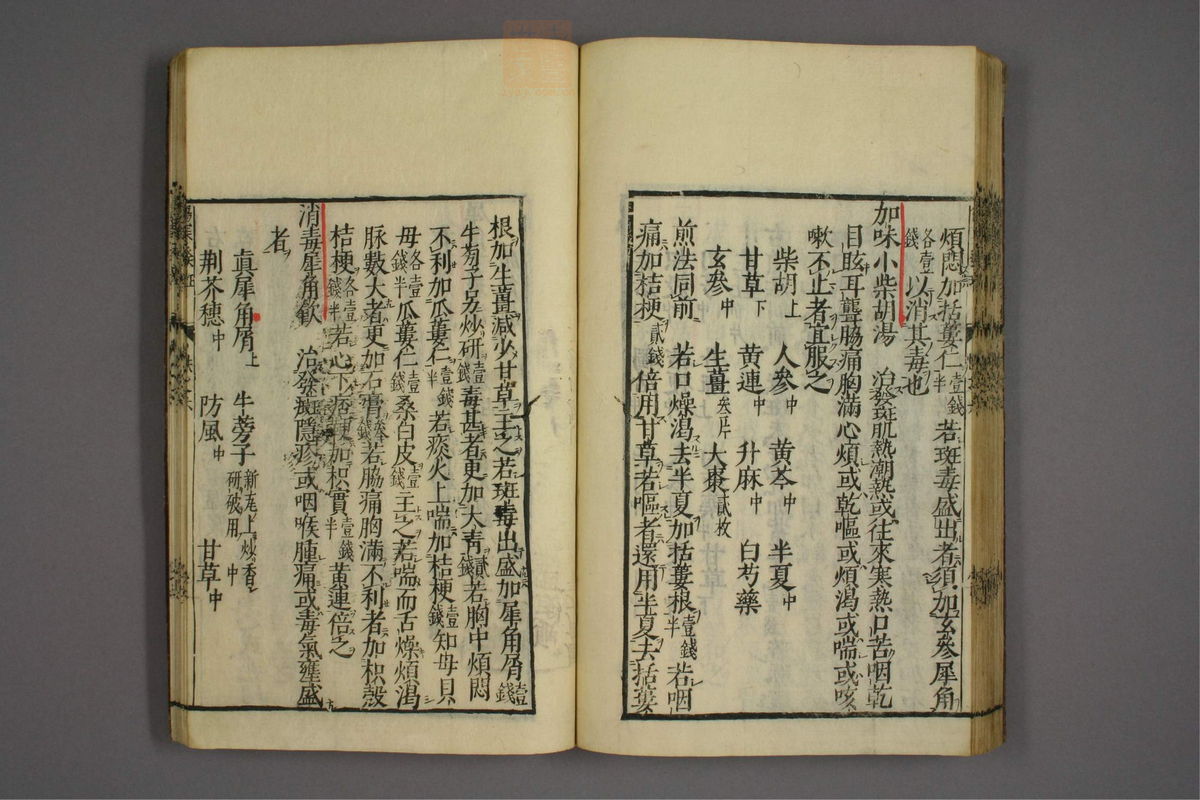 煩悶加括蔞仁壹錢半若斑毒盛出者須加玄參犀角
各壹錢以消其毒也
加味小柴胡湯 治發斑肌熱潮熱或往來寒熱口苦咽乾
目眩耳聾脇痛胸滿心煩或乾嘔或煩渴或喘或咳
嗽不止者宜服之
柴胡上 人參中 黃芩中 半夏中
甘草下 黃連中 升麻中 白芍藥
玄參中 生薑叁片 大棗貳枚
煎法同前 若口燥渴去半夏加括蔞根壹錢半若咽
痛加桔梗貳錢倍用甘草若嘔者還用半夏去括蔞
根加生薑減少甘草主之若斑毒出盛加犀角屑壹錢
牛蒡子另炒研壹錢毒甚者更加大靑貳錢若胸中煩悶
不利加瓜蔞仁壹錢半若痰火上喘加桔梗壹錢知母貝
母各壹錢半瓜蔞仁壹錢桑白皮壹錢主之若喘而舌燥煩渴
脉數大者更加石膏叁錢若脇痛胸滿不利者加枳殼
桔梗各壹錢半若心下痞更加枳實壹錢半黃連倍之
消毒犀角飮 治發斑癮疹或咽喉腫痛或毒氣壅盛
者
眞犀角屑上 牛蒡子新瓦上炒香研破用中
荆芥穗中 防風中 甘草中